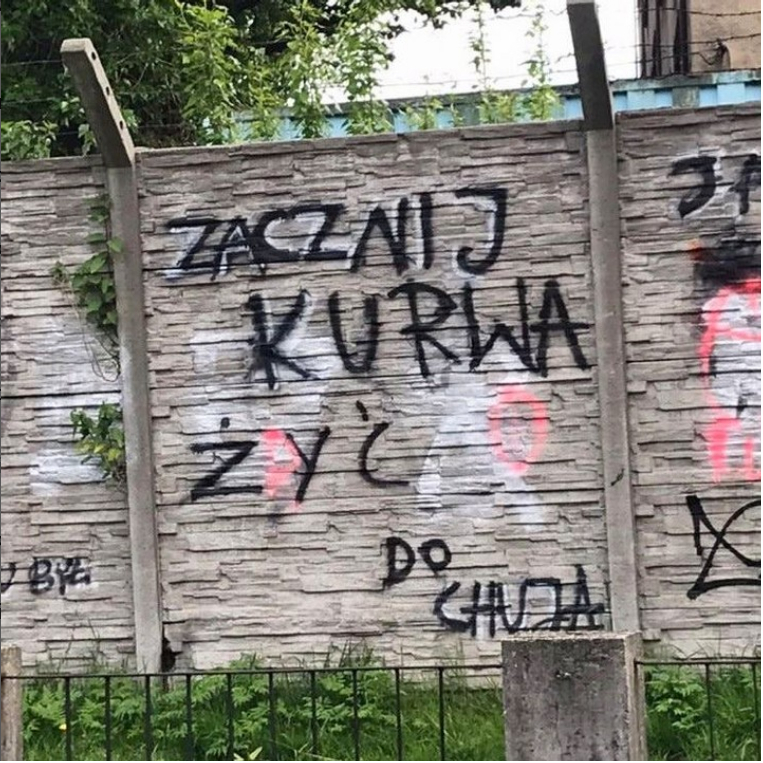 ZACZNIJ
KURWA
ŻYĆ
DO
CHUJA